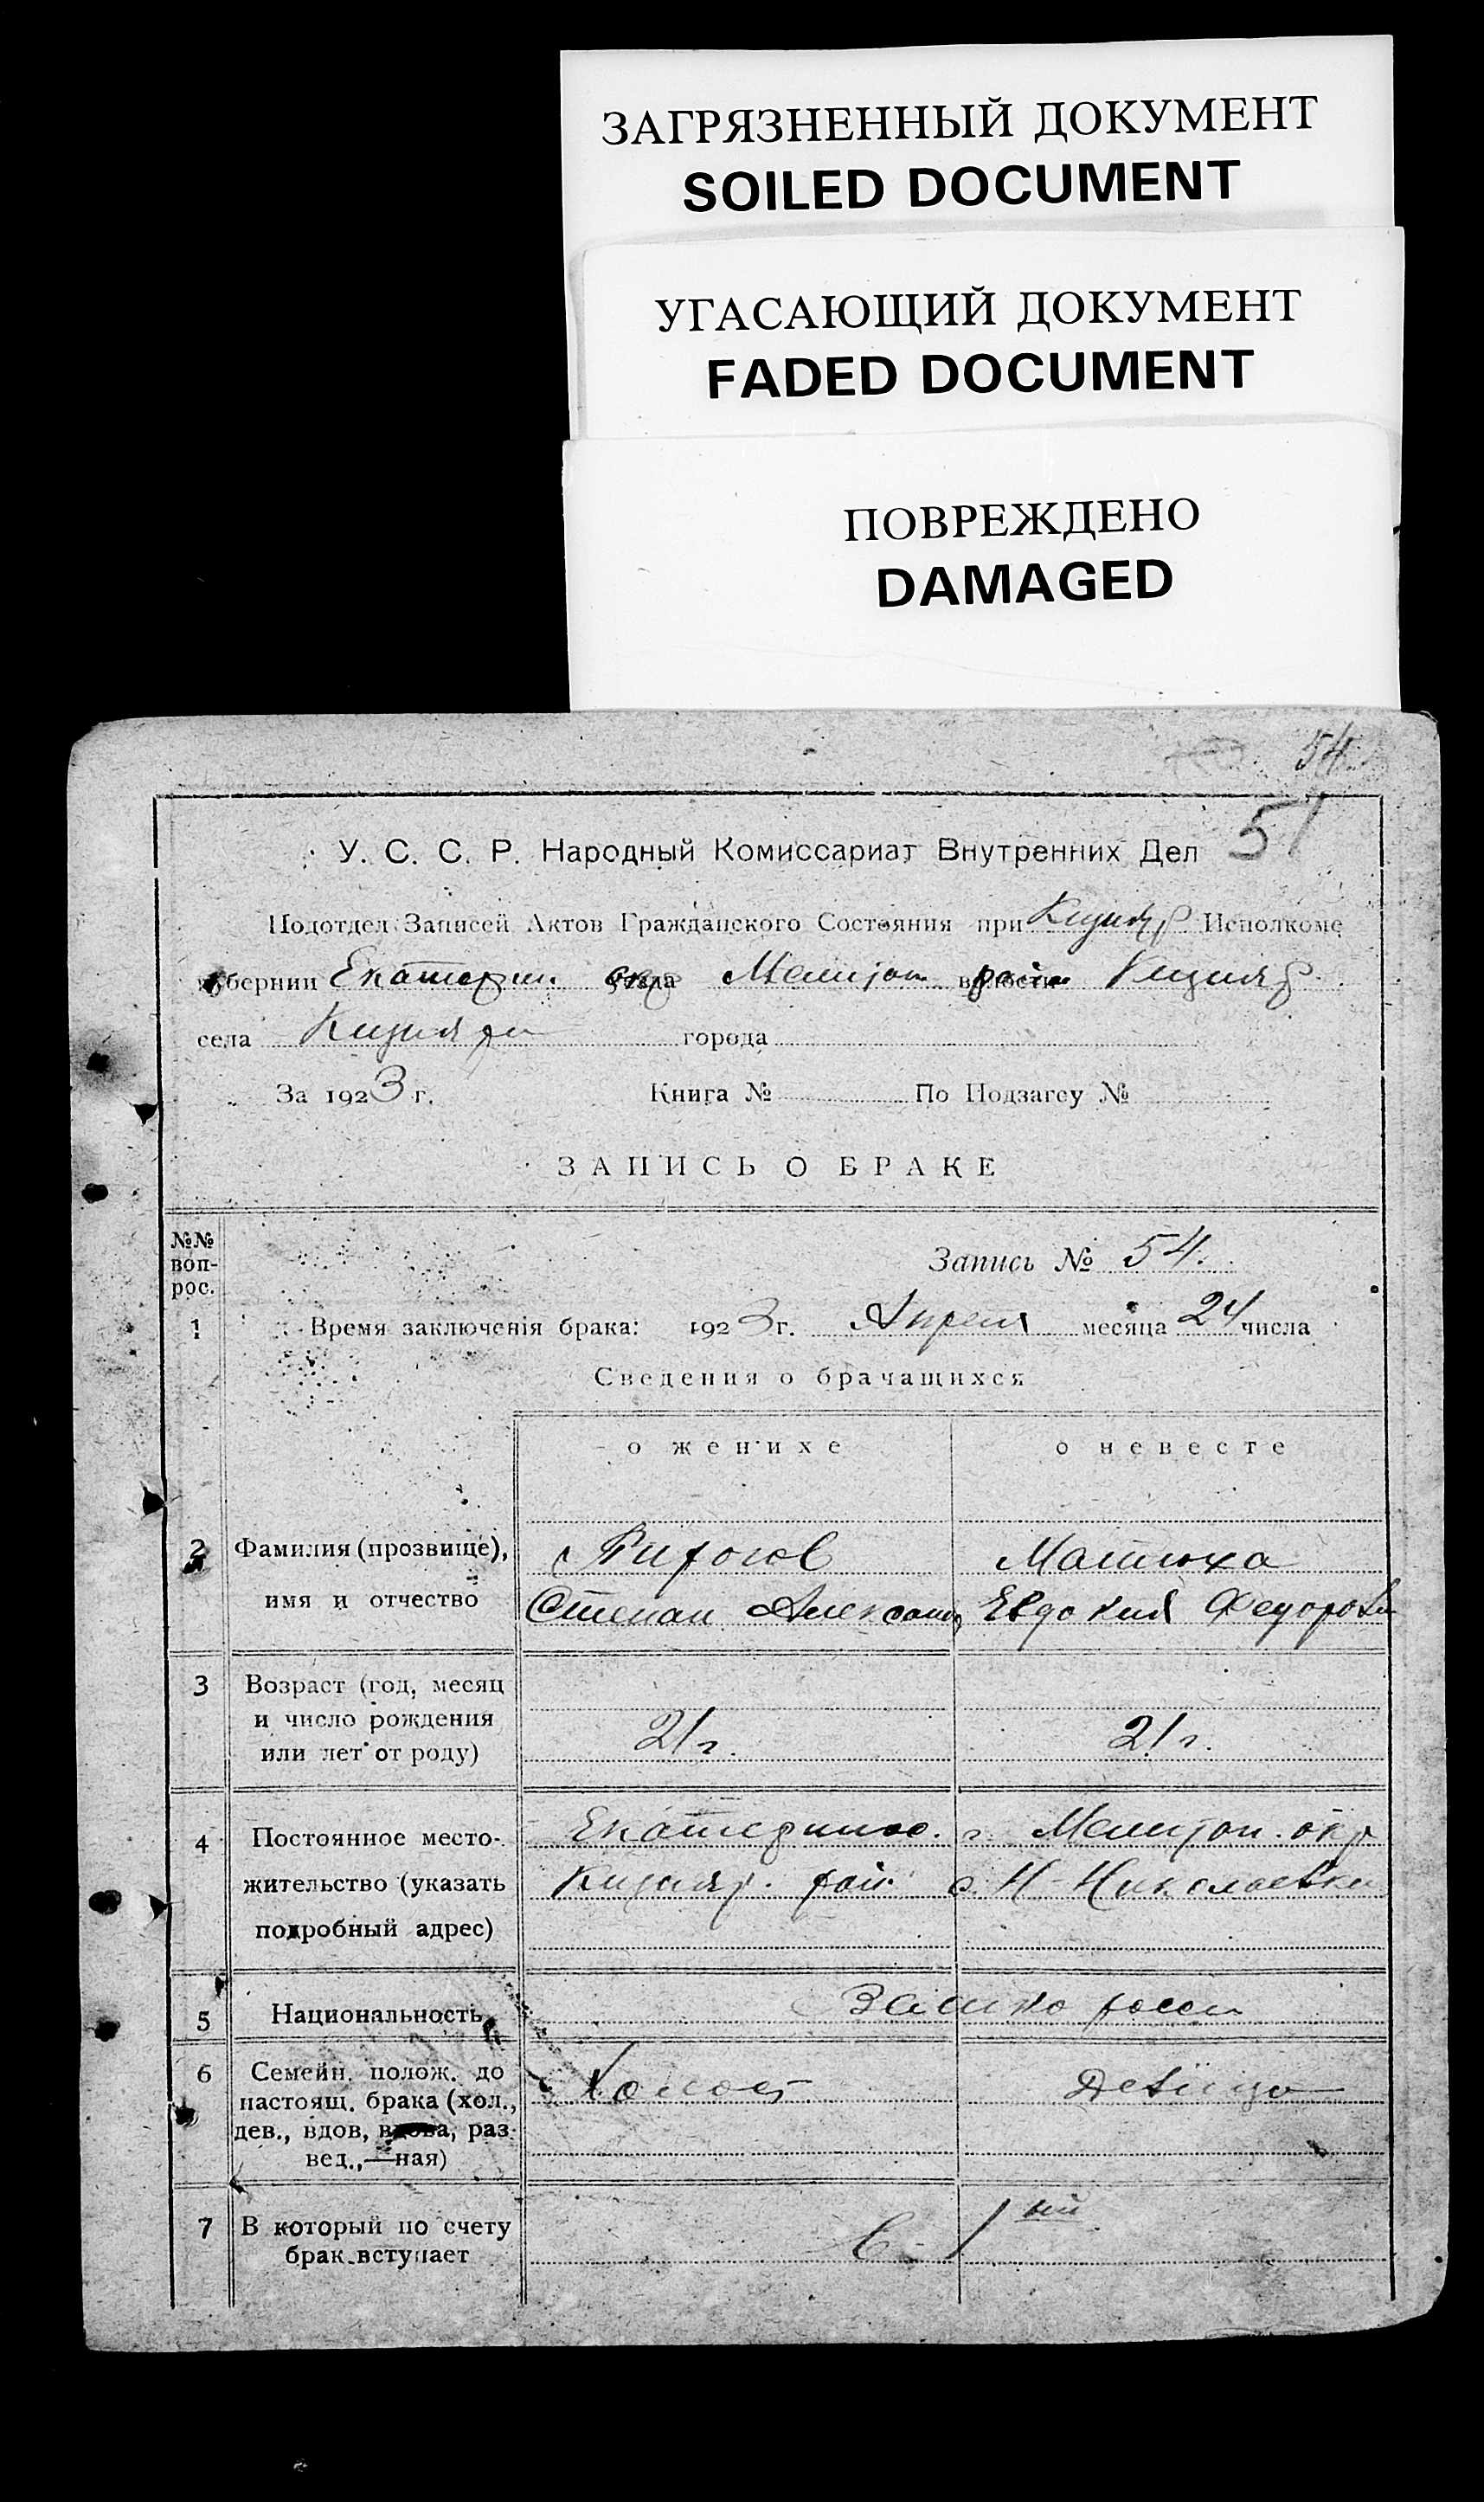 ЗАГРЯЗНЕННЫЙ ДОКУМЕНТ
SOILED DOCUMENT
УГАСАЮЩИЙ ДОКУМЕНТ
FADED DOCUMENT
ПОВРЕЖДЕНО
DAMAGED
54
51
У. С. С. Р. Народный Комиссариат Внутренних Дел
Подотдел Записей Актов Гражданского Состояния при Кизияр Исполкоме
губернии Екатерин. Мелитоп. Кизияр
села Кизияр города
За 1923 г. Книга № По Подзагсу №
ЗАПИСЬ О БРАКЕ
№№ вопрос.
Запись № 54.
1 Время заключенія брака: 1923 г. Апреля месяца 24 числа
Сведения о брачащихся
о женихе о невесте
2 Фамилия (прозвище), Матюха
имя и отчество Степан Александ Евдокия Федоровн
3 Возраст (год, месяц
и число рождения
или лет от роду) 21 г. 21 г.
4 Постоянное место- Екатеринос. г. Мелитоп. окр
жительство (указать Кизияр. рай. с. Н-Николаевки
подробный адрес)
5 Национальность Велико росси
6 Семейн. полож. до Холост Девица
настоящ. брака (хол.,
дев., вдов, вдова, раз-
вед.,—ная)
7 В который по счету
брак вступает в 1ый